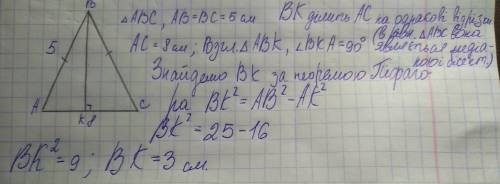 B
△ABC, AB=BC=5 см
BK ділить AC на однакові відрізки
AC = 8 см, Розгл. △ABK, ∠BKA=90°
(в рівн. △ABC вона
являється медіа-
5
Знайдемо BK за теоремою Піфаго-
ра BK² = AB² - AK²
A
K
8
C
BK² = 25 - 16
BK² = 9 ; BK = 3 см.